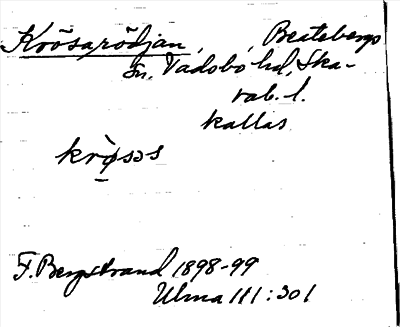 Krösarödjan, Beatebergs
sn, Vadsbo hd, Ska-
rab. l.
kallas
krø̀sɔs
F. Bergstrand 1898-99
Ulma 111:301